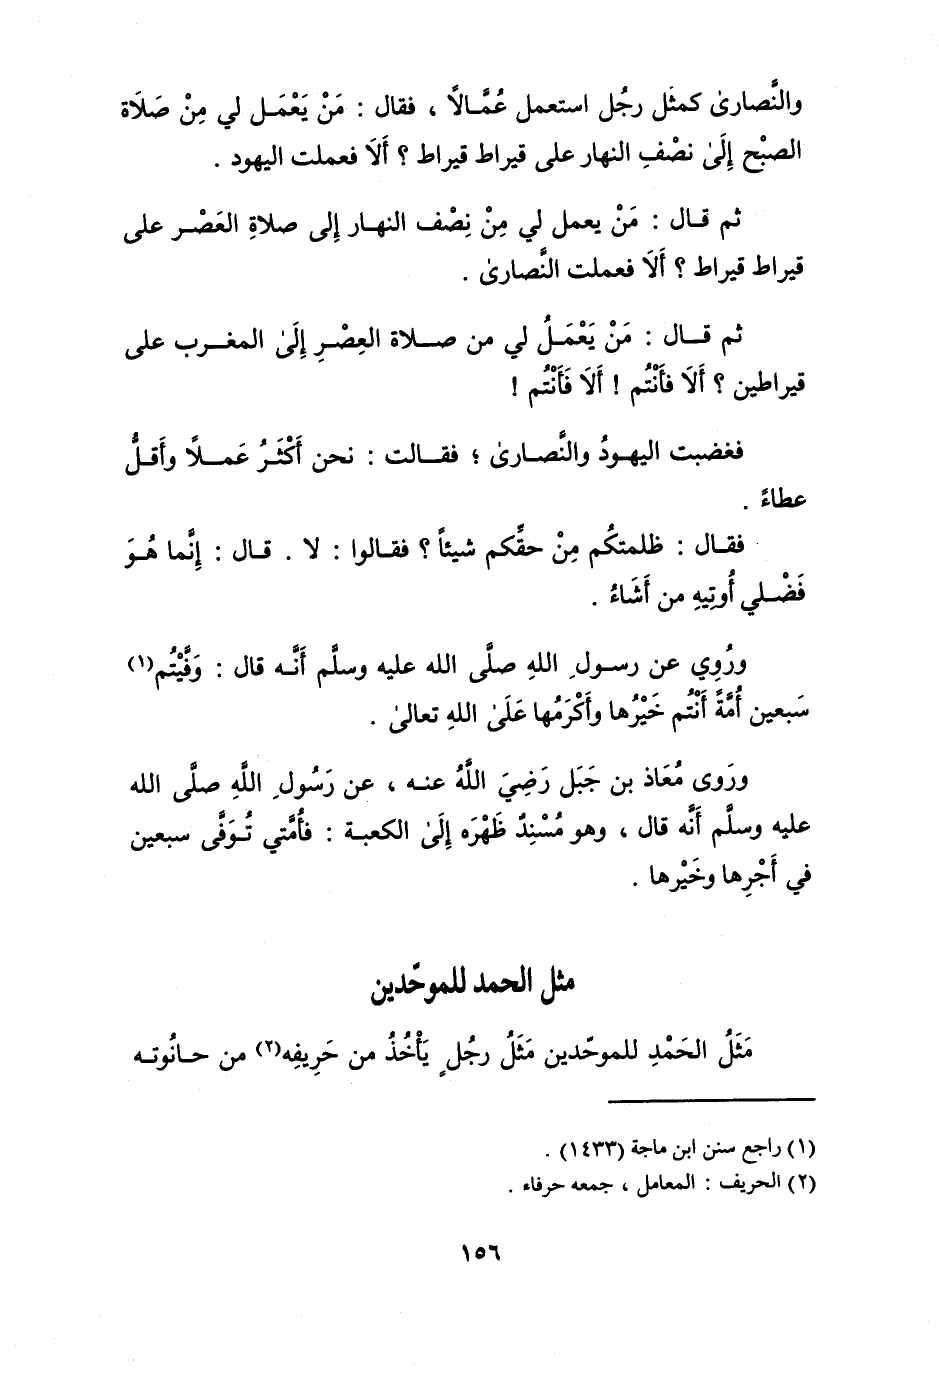 والنَّصارىٰ كمثَل رجُل استعمل عُمَّالاً ، فقال : مَنْ يَعْمَل لي مِنْ صَلَاة
الصبْح إِلَىٰ نصْفِ النهار على قيراط قيراط ؟ أَلَا فعملت اليهود .
ثم قال : مَنْ يعمل لي مِنْ نِصْف النهار إِلى صلاةِ العَصْر على
قيراط قيراط ؟ أَلَا فعملت النَّصارىٰ .
ثم قال : مَنْ يَعْمَلُ لي من صلاة العِصْرِ إِلَىٰ المغرب على
قيراطين ؟ أَلَا فأَنْتُم ! أَلَا فَأَنْتُم !
فغضبت اليهودُ والنَّصارىٰ ؛ فقالت : نحن أَكْثَرُ عَملاً وأَقلُّ
عطاءً .
فقال : ظلمتكُم مِنْ حقَّكم شيئاً ؟ فقالوا : لا . قال : إِنَّما هُوَ
فَضْلي أُوتِيهِ من أَشَاءُ .
ورُوِي عن رسولِ اللهِ صلَّى الله عليه وسلَّم أَنَّه قال : وَفَّيْتُم(١)
سَبعين أُمَّةً أَنْتُم خَيْرُها وأَكْرَمُها عَلَىٰ اللهِ تعالىٰ .
ورَوى مُعَاذ بن جَبَل رَضِيَ اللَّهُ عنه ، عن رَسُولِ اللَّهِ صلَّى الله
عليه وسلَّم أَنَّه قال ، وهو مُسْنِدٌ ظَهْرَه إِلَىٰ الكعبة : فأُمَّتي تُوَفَّى سبعين
في أَجْرِها وخَيْرها .
مثل الحمد للموحّدين
مَثَلُ الحَمْدِ للموحّدين مَثَلُ رجُلٍ يَأْخُذُ من حَرِيفِه(٢) من حانُوته
(١) راجع سنن ابن ماجة (١٤٣٣) .
(٢) الحريف : المعامل ، جمعه حرفاء .
١٥٦